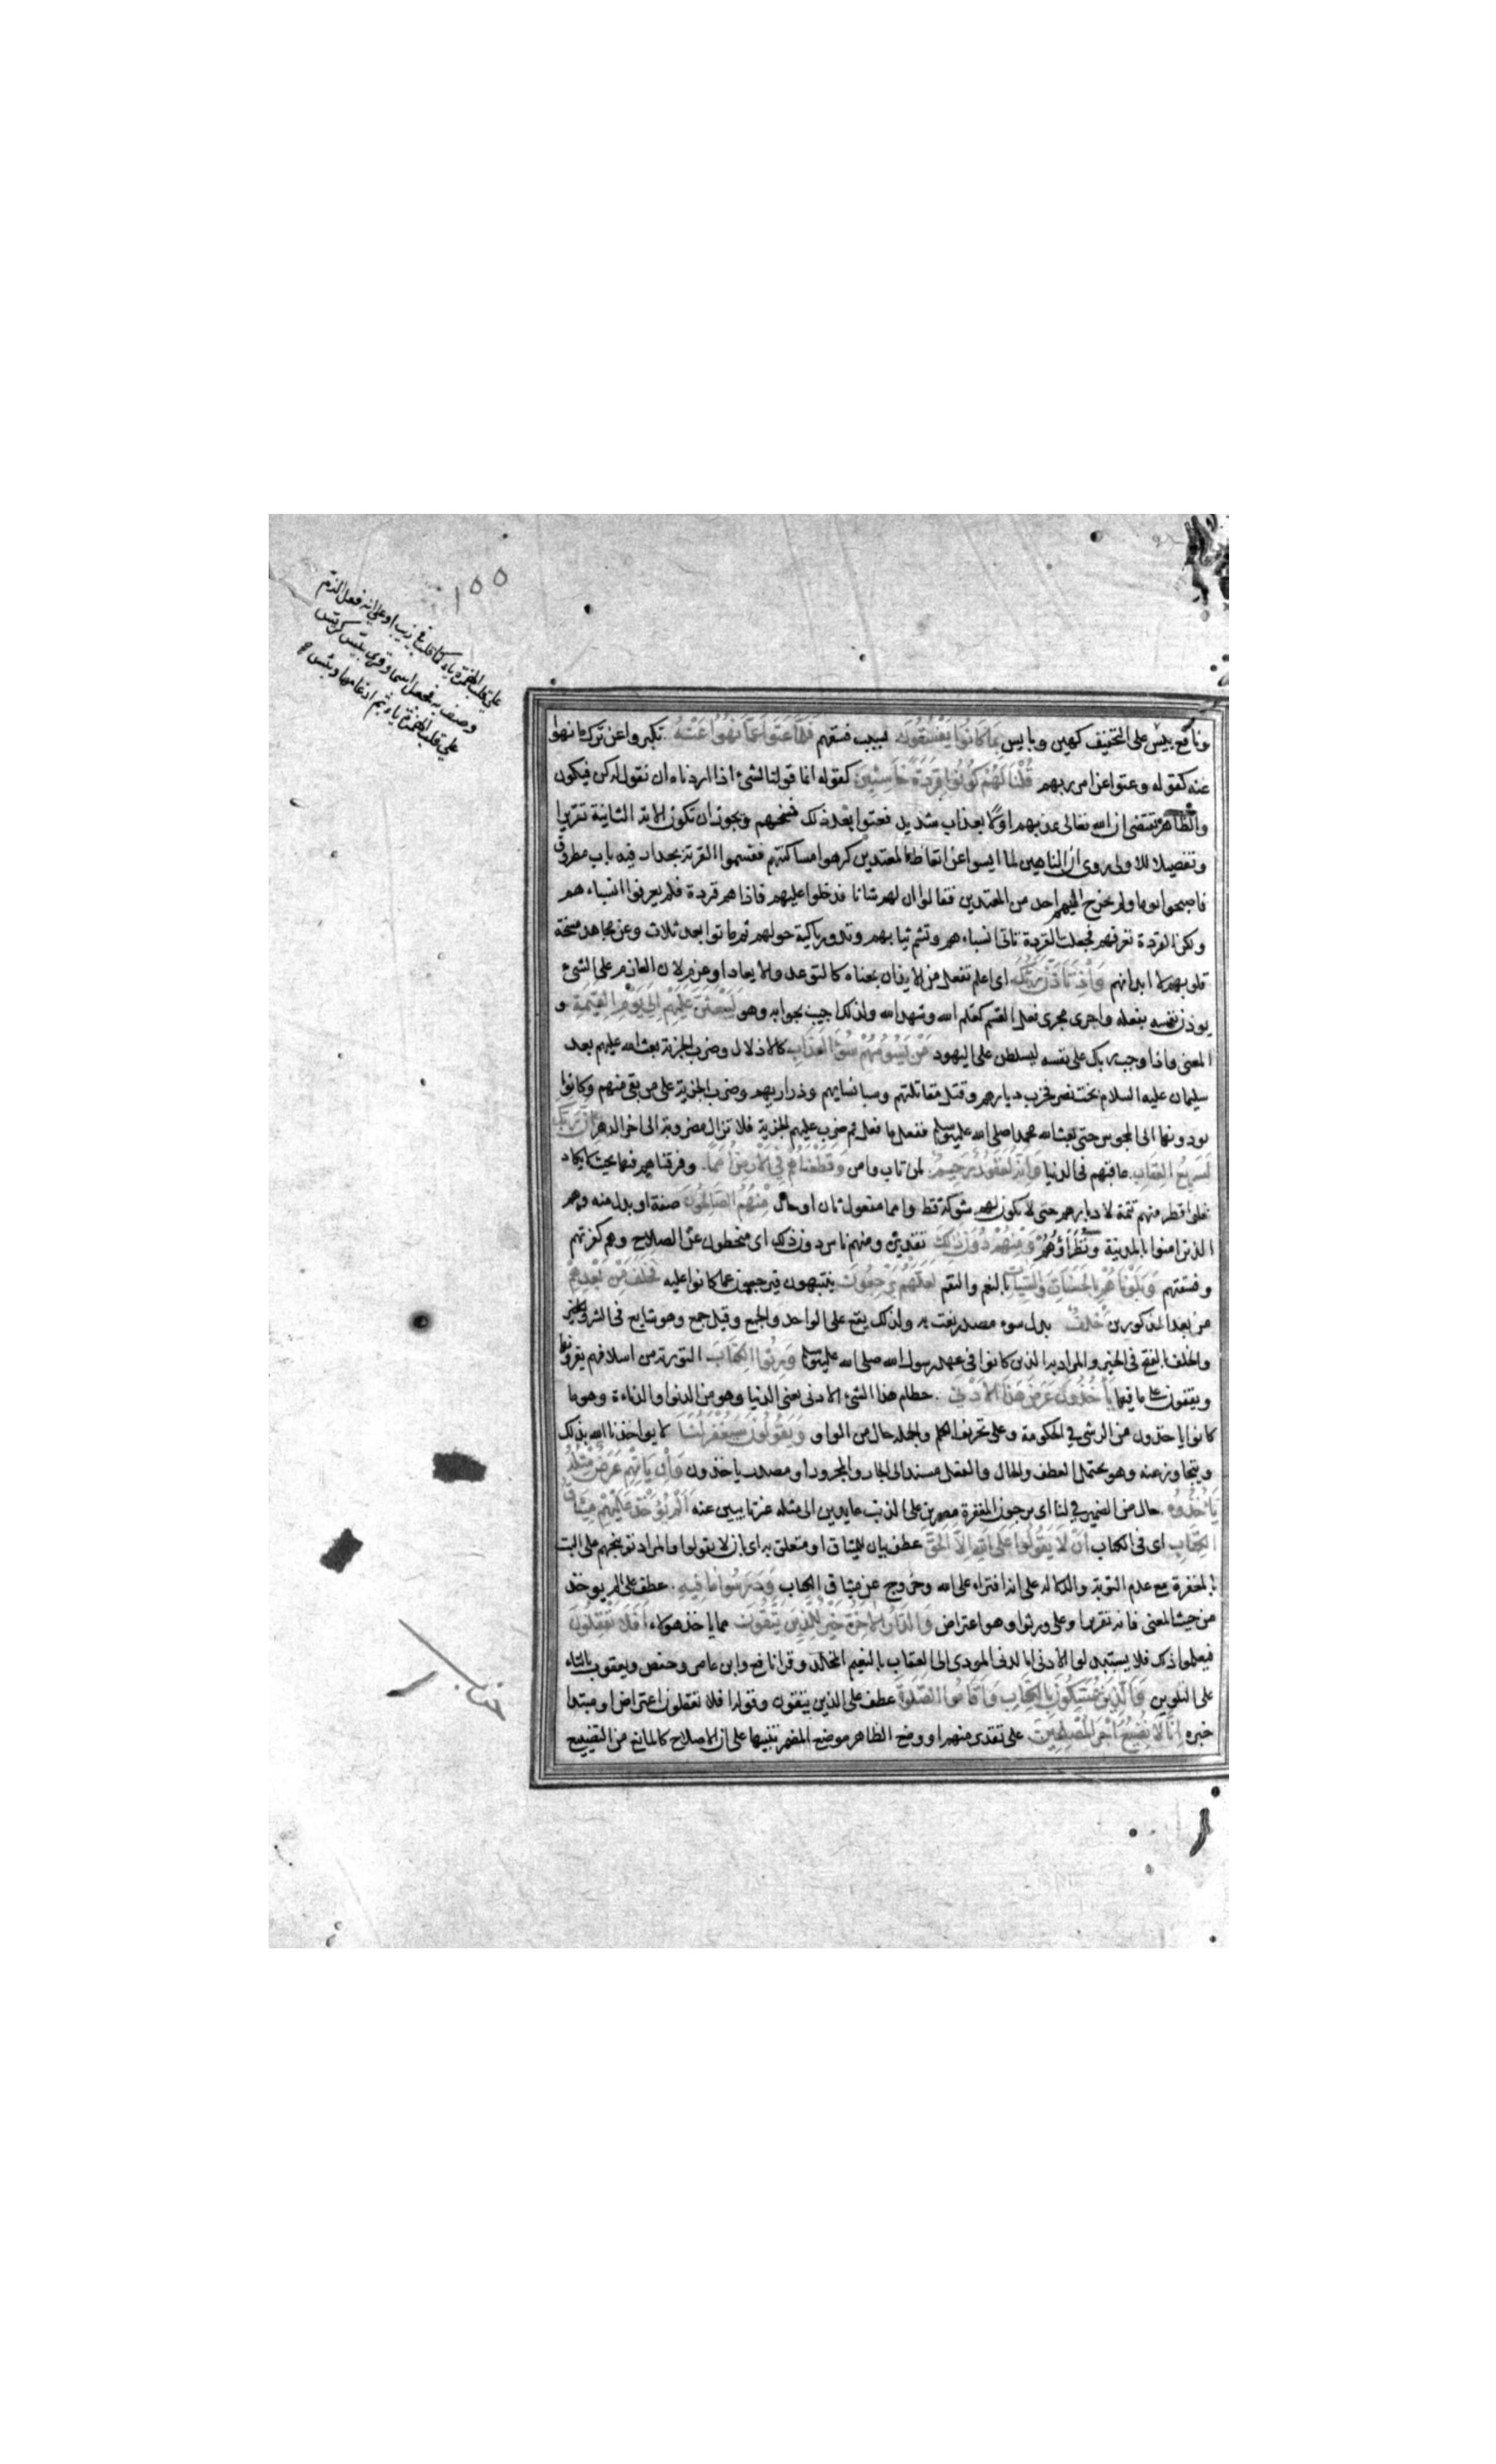 ١٥٥
على قلب الهمزة ياء كما قلبت في ذيب او على انه فعل الذم
وصف به فجعل اسما وقرئ بيس كريس
على قلب الهمزة ياء ثم ادغامها وبيئس
ونافع بيس على التخفيف كهين وبايس بِمَا كَانُوا يَفْسُقُونَ بسبب فسقهم فَلَمَّا عَتَوْا عَمَّا نُهُوا عَنْهُ تكبروا عن ترك ما نهوا
عنه كقوله وعتوا عن امر ربهم قُلْنَا لَهُمْ كُونُوا قِرَدَةً خَاسِئِينَ كقوله انما قولنا لشئ اذا اردناه ان نقول له كن فيكون
والظاهر يقتضى ان الله تعالى عذبهم اولا بعذاب شديد فعتوا بعد ذلك فمسخهم ويجوز ان تكون الاية الثانية تقريرا
وتفصيلا للاولى روى ان الناهين لما ايسوا عن اتعاظ المعتدين كرهوا مساكنتهم فقسموا القرية بجدار فيه باب مطروق
فاصبحوا يوما ولم يخرج اليهم احد من المعتدين فقالوا ان لهم شانا فدخلوا عليهم فاذا هم قردة فلم يعرفوا انسباءهم
ولكن القردة تعرفهم فجعلت القردة تاتى انسباءهم وتشم ثيابهم وتدور باكية حولهم ثم ماتوا بعد ثلاث وعن مجاهد مسخت
قلوبهم لا ابدانهم وَإِذْ تَأَذَّنَ رَبُّكَ اى اعلم تفعل من الايذان بمعناه كالتوعد والايعاد او عزم لان العازم على الشئ
يوذن نفسه بفعله واجرى مجرى فعل القسم كعلم الله وشهد الله ولذلك اجيب بجوابه وهو لَيَبْعَثَنَّ عَلَيْهِمْ إِلَى يَوْمِ الْقِيٰمَةِ و
المعنى واذا وجب ربك على نفسه ليسلطن على اليهود مَنْ يَسُومُهُمْ سُوءَ الْعَذَابِ كالاذلال وضرب الجزية بعث الله عليهم بعد
سليمان عليه السلام بخت نصر فخرب ديارهم وقتل مقاتلتهم وسبا نسايهم وذراريهم وضرب الجزية على من بقى منهم وكانوا
يودونها الى المجوس حتى بعث الله محمدا صلى الله عليه وسلم ففعل ما فعل ثم ضرب عليهم الجزية فلا تزال مضروبة الى اخر الدهر إِنَّ رَبَّكَ
لَسَرِيعُ الْعِقَابِ عاقبهم فى الدنيا وَإِنَّهُ لَغَفُورٌ رَحِيمٌ لمن تاب وامن وَقَطَّعْنَاهُمْ فِي الْأَرْضِ أُمَمًا وفرقناهم فيها بحيث لا يكاد
يخلوا قطر منهم تتمة لادبارهم حتى لا يكون لهم شوكة قط وامما مفعول ثان او حال مِنْهُمُ الصَّالِحُونَ صفة او بدل منه وهم
الذين امنوا بالمدينة ونظراؤهم وَمِنْهُمْ دُونَ ذَلِكَ تقديره ومنهم ناس دون ذلك اى منحطون عن الصلاح وهم كفرتهم
وفسقتهم وَبَلَوْنَاهُمْ بِالْحَسَنَاتِ وَالسَّيِّئَاتِ بالنعم والنقم لَعَلَّهُمْ يَرْجِعُونَ ينتبهون فيرجعون عما كانوا عليه فَخَلَفَ مِنْ بَعْدِهِمْ
من بعد المذكورين خَلْفٌ بدل سوء مصدر نعت به ولذلك يقع على الواحد والجمع وقيل جمع وهو شايع فى الشر
والخلف بالفتح فى الخير والمراد به الذين كانوا فى عهد رسول الله صلى الله عليه وسلم وَرِثُوا الْكِتَابَ التورية من اسلافهم يقرؤنها
ويقفون على ما فيها يَأْخُذُونَ عَرَضَ هَذَا الْأَدْنَى حطام هذا الشئ الادنى يعنى الدنيا وهو من الدنو او الدناءة وهو ما
كانوا ياخذون من الرشى في الحكومة وعلى تحريف الكلم والجملة حال من الواو وَيَقُولُونَ سَيُغْفَرُ لَنَا لا يواخذنا الله بذلك
ويتجاوز عنه وهو يحتمل العطف والحال والفعل مسند الى الجار والمجرور او مصدر ياخذون وَإِنْ يَأْتِهِمْ عَرَضٌ مِثْلُهُ
يَأْخُذُوهُ حال من الضمير في لنا اى يرجون المغفرة مصرين على الذنب عايدين الى مثله غير تايبين عنه أَلَمْ يُؤْخَذْ عَلَيْهِمْ مِيثَاقُ
الْكِتَابِ اى فى الكتاب أَنْ لَا يَقُولُوا عَلَى اللهِ إِلَّا الْحَقَّ عطف بيان للميثاق او متعلق به اى بان لا يقولوا والمراد توبيخهم على البت
بالمغفرة مع عدم التوبة والدلالة على انه افتراء على الله وخروج عن ميثاق الكتاب وَدَرَسُوا مَا فِيهِ عطف على الم يوخذ
من حيث المعنى فانه تقرير او على ورثوا وهو اعتراض وَالدَّارُ الْآخِرَةُ خَيْرٌ لِلَّذِينَ يَتَّقُونَ مما ياخذ هولاء أَفَلَا تَعْقِلُونَ
فيعلموا ذلك فلا يستبدلوا الادنى الدنى المودى الى العقاب بالنعيم المخلد وقرا نافع وابن عامر وحفص ويعقوب بالتاء
على التلوين وَالَّذِينَ يُمَسِّكُونَ بِالْكِتَابِ وَأَقَامُوا الصَّلٰوةَ عطف على الذين يتقون وقوله افلا تعقلون اعتراض او مبتدا
خبره إِنَّا لَا نُضِيعُ أَجْرَ الْمُصْلِحِينَ على تقدير منهم او وضع الظاهر موضع المضمر تنبيها على ان الاصلاح كالمانع من التضييع